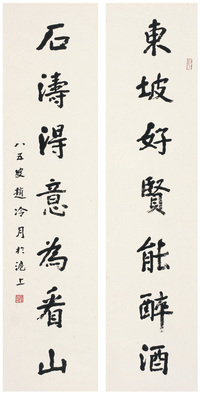 東坡好賢能醉酒
石濤得意為看山
八五叟趙冷月於滬上